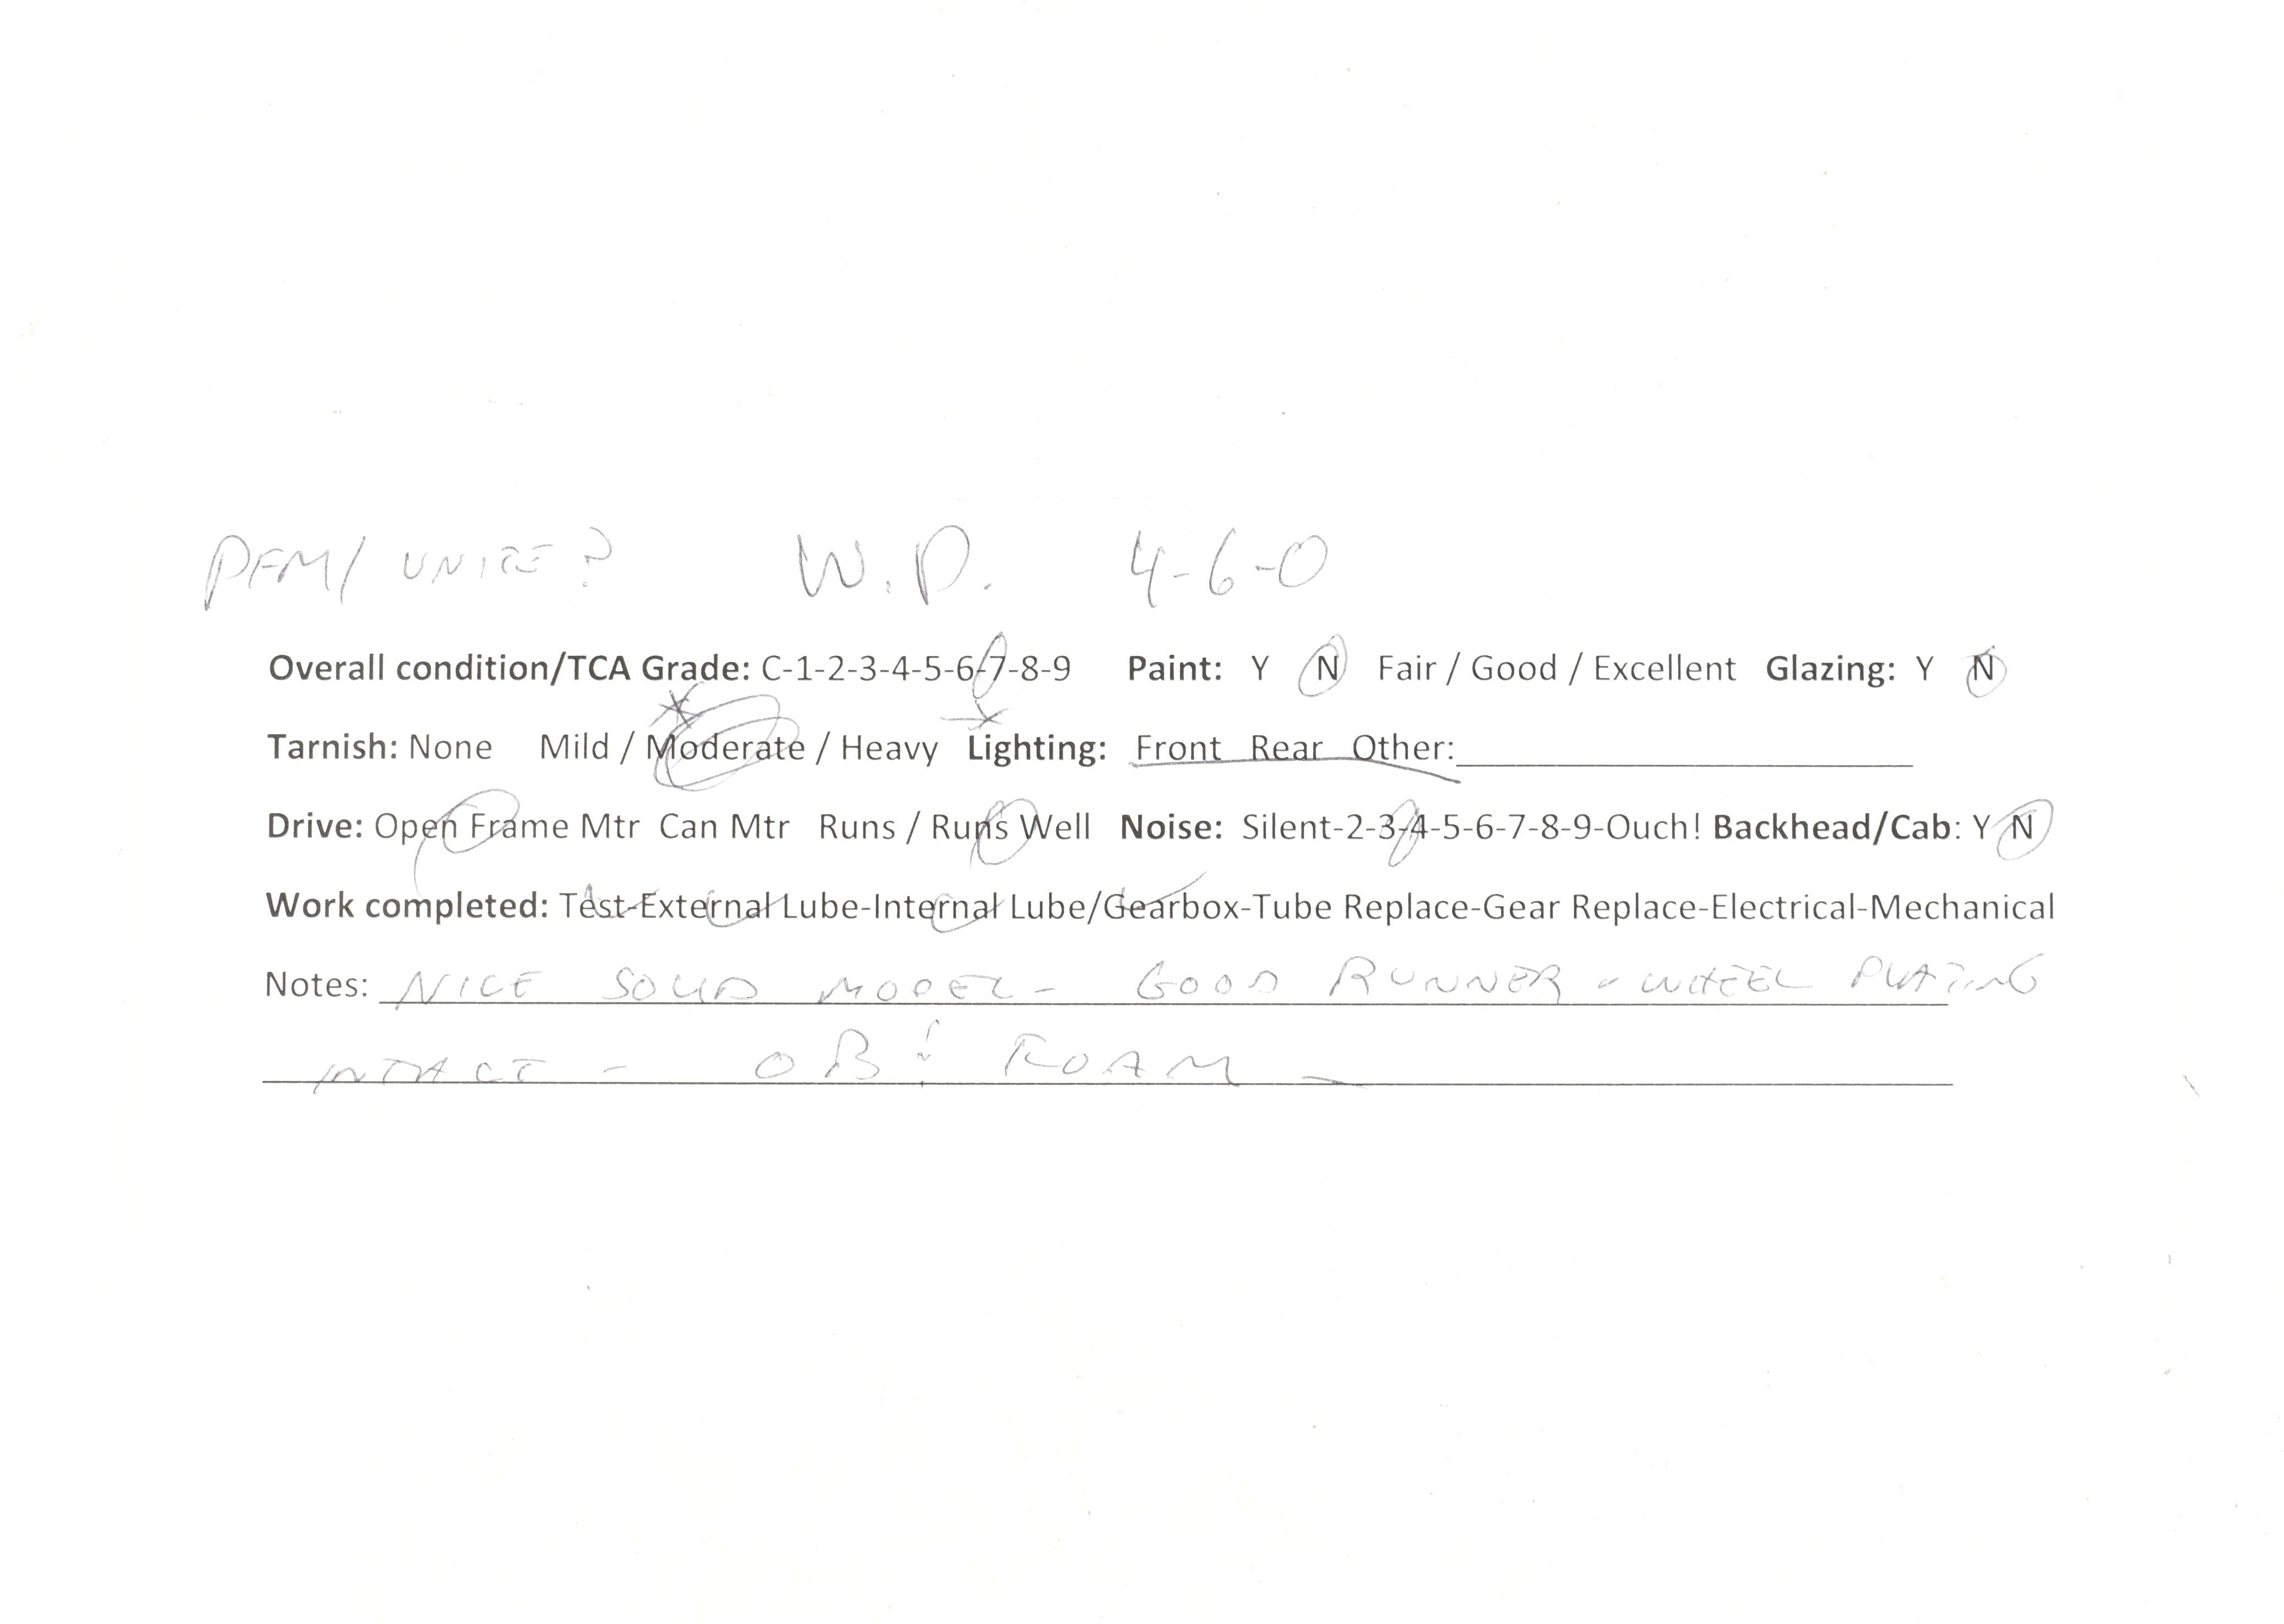 PFM/ UNITE? W.P. 4-6-0
Overall condition/TCA Grade: C-1-2-3-4-5-6-7-8-9 Paint: Y N Fair / Good / Excellent Glazing: Y N
Tarnish: None Mild / Moderate / Heavy Lighting: Front Rear Other:
Drive: Open Frame Mtr Can Mtr Runs / Runs Well Noise: Silent-2-3-4-5-6-7-8-9-Ouch! Backhead/Cab: Y N
Work completed: Test-External Lube-Internal Lube/Gearbox-Tube Replace-Gear Replace-Electrical-Mechanical
Notes: NICE SOLID MODEL - GOOD RUNNER - WHEEL PLATING
INTACT - OB & FOAM -